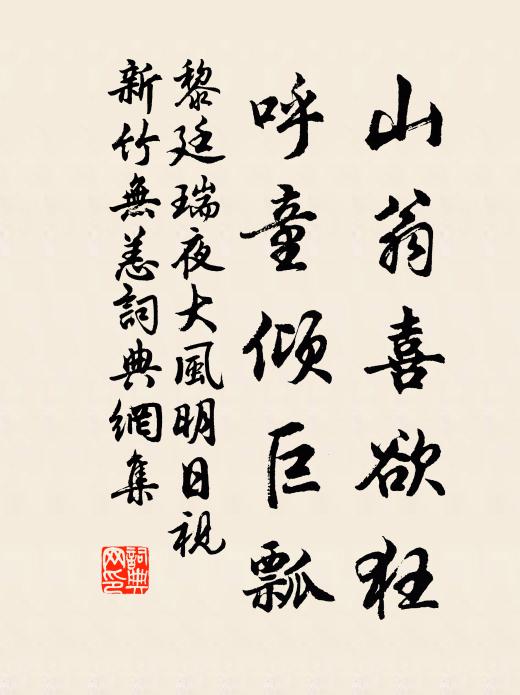 山翁喜欲狂
呼童傾巨瓢
黎廷瑞夜大風明日視
新竹無恙詞典網集
詞典网印